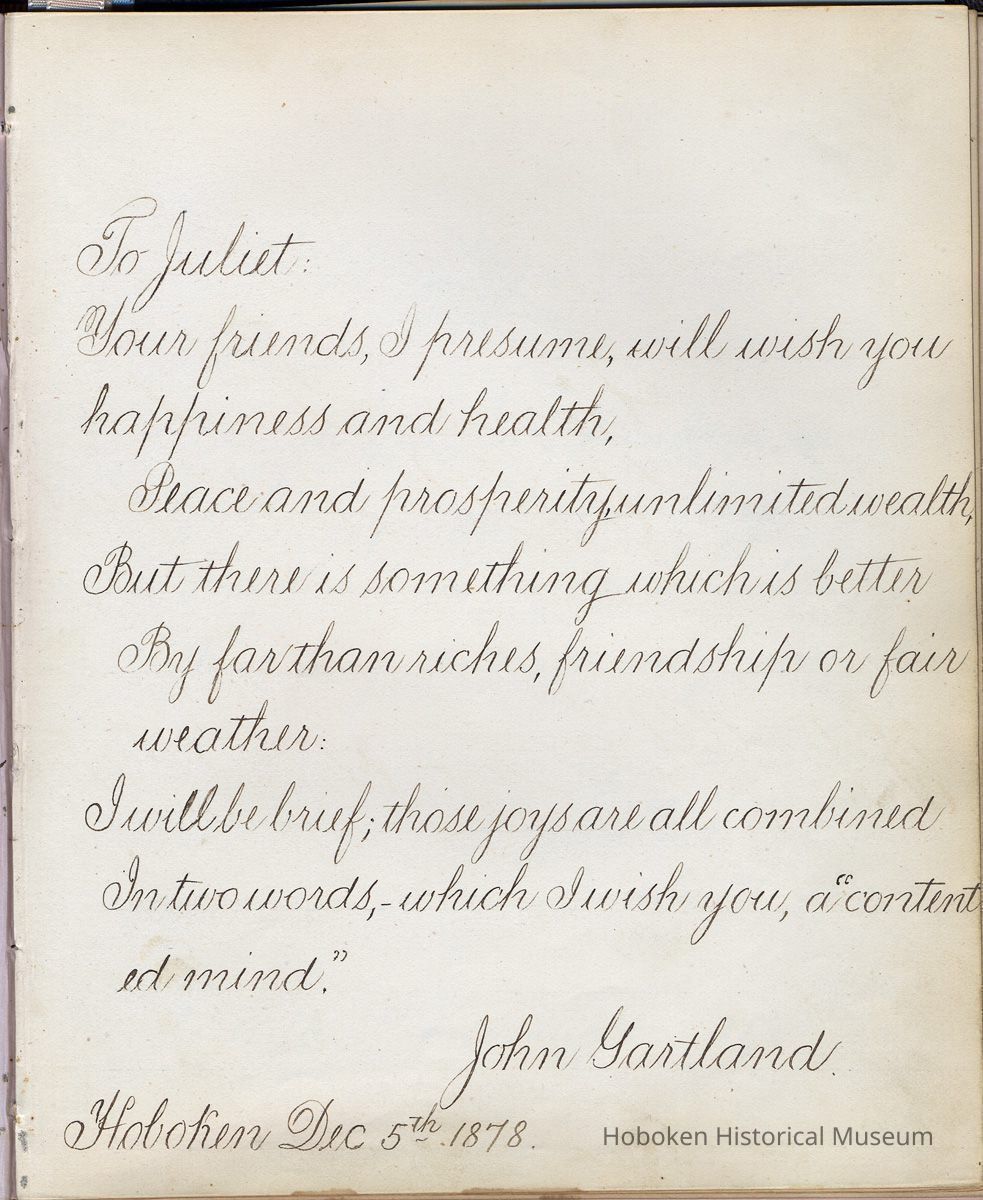 To Juliet:
Your friends, I presume, will wish you
happiness and health,
Peace and prosperity, unlimited wealth,
But there is something which is better
By far than riches, friendship or fair
weather:
I will be brief; those joys are all combined
In two words,- which I wish you, a "content
ed mind."
John Gartland.
Hoboken Dec 5th 1878.
Hoboken Historical Museum